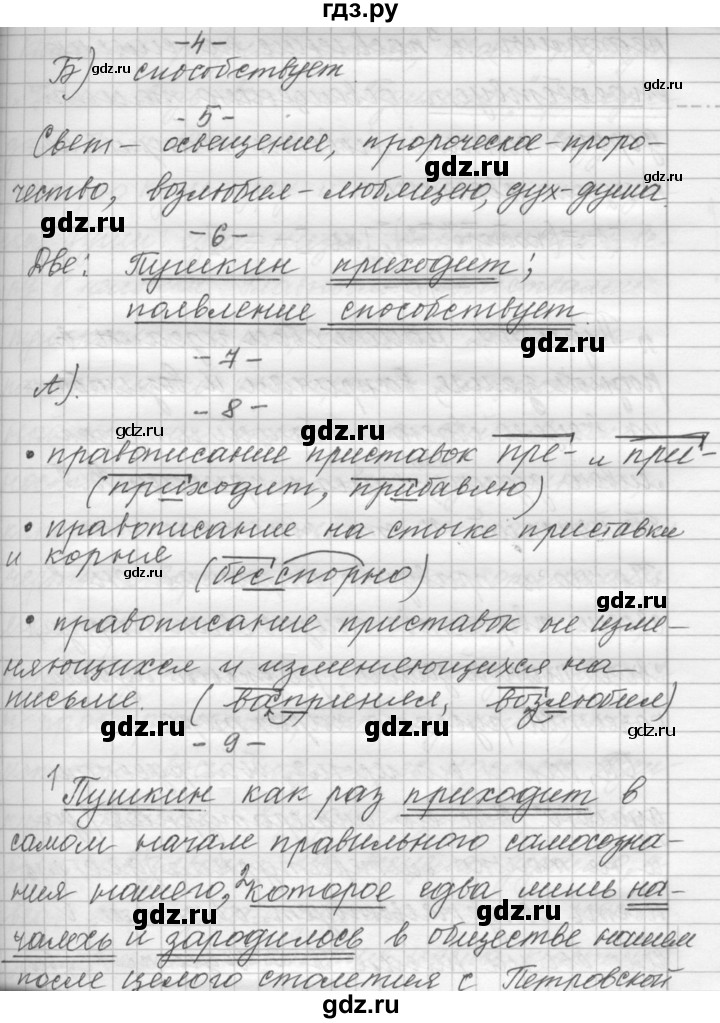 гдз.ру
-4-
Б) способствует
-5-
Свет - освещение, пророческое - проро-
чество, возлюбил - люблицею, дух - душа.
-6-
Две: Пушкин приходит;
появление способствует.
-7-
А).
-8-
• правописание приставок пре- и при-
(приходит, прибавлю)
• правописание на стыке приставки
и корня (бесспорно)
• правописание приставок не изме-
няющихся и изменяющихся на
письме. (воспринял, возлюбил)
-9-
1 Пушкин как раз приходит в
самом начале правильного самосозна-
ния нашего, 2 которое едва лишь на-
чалось и зародилось в обществе нашем
после целого столетия с Петровской
gdz.ru